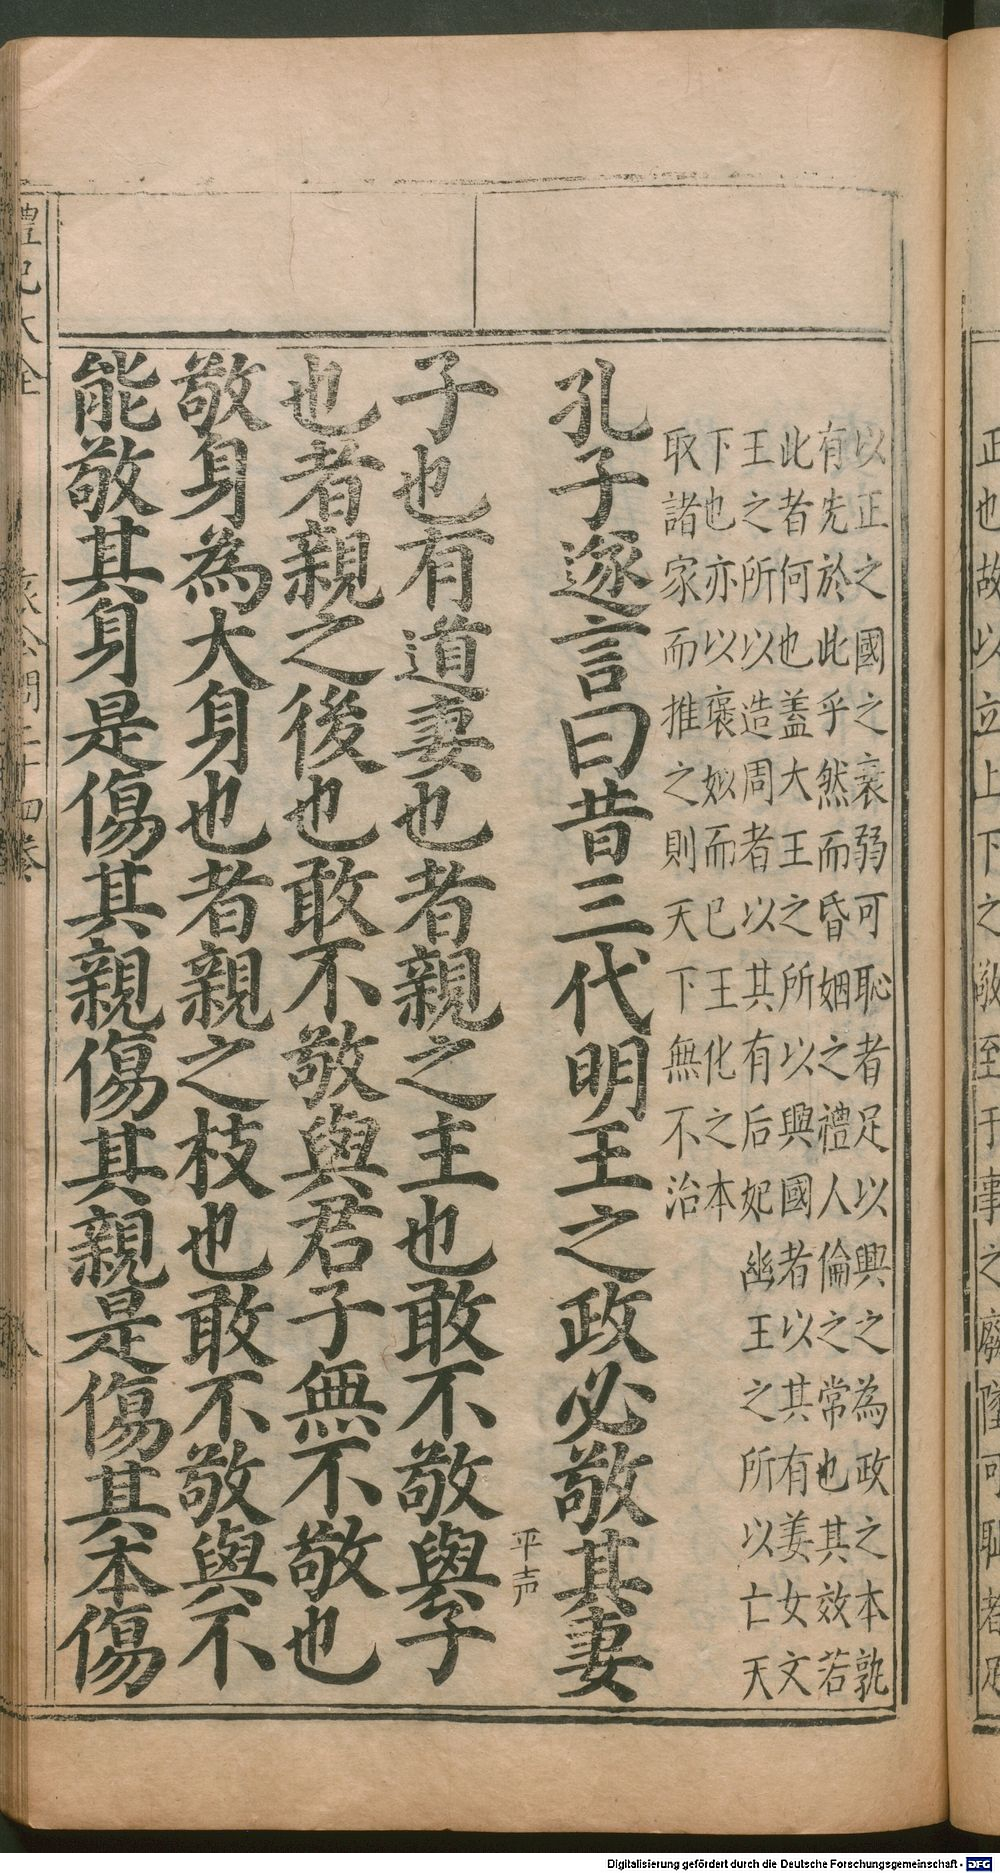 以正之國之衰弱可恥者足以興之為政之本孰
有先於此乎然而昏姻之禮人倫之常也其效若
此者何也蓋大王之所以興國者以其有姜女文
王之所以造周者以其有后妃幽王之所以亡天
下也亦以褒姒而已王化之本
取諸家而推之則天下無不治
孔子遂言曰昔三代明王之政必敬其妻
子也有道妻也者親之主也敢不敬與子
平声
也者親之後也敢不敬與君子無不敬也
敬身為大身也者親之枝也敢不敬與不
能敬其身是傷其親傷其親是傷其本傷
禮記大全
哀公問二十四卷
八
正也故以立上下之敬至于事之廢墜可恥者足
Digitalisierung gefördert durch die Deutsche Forschungsgemeinschaft - DFG